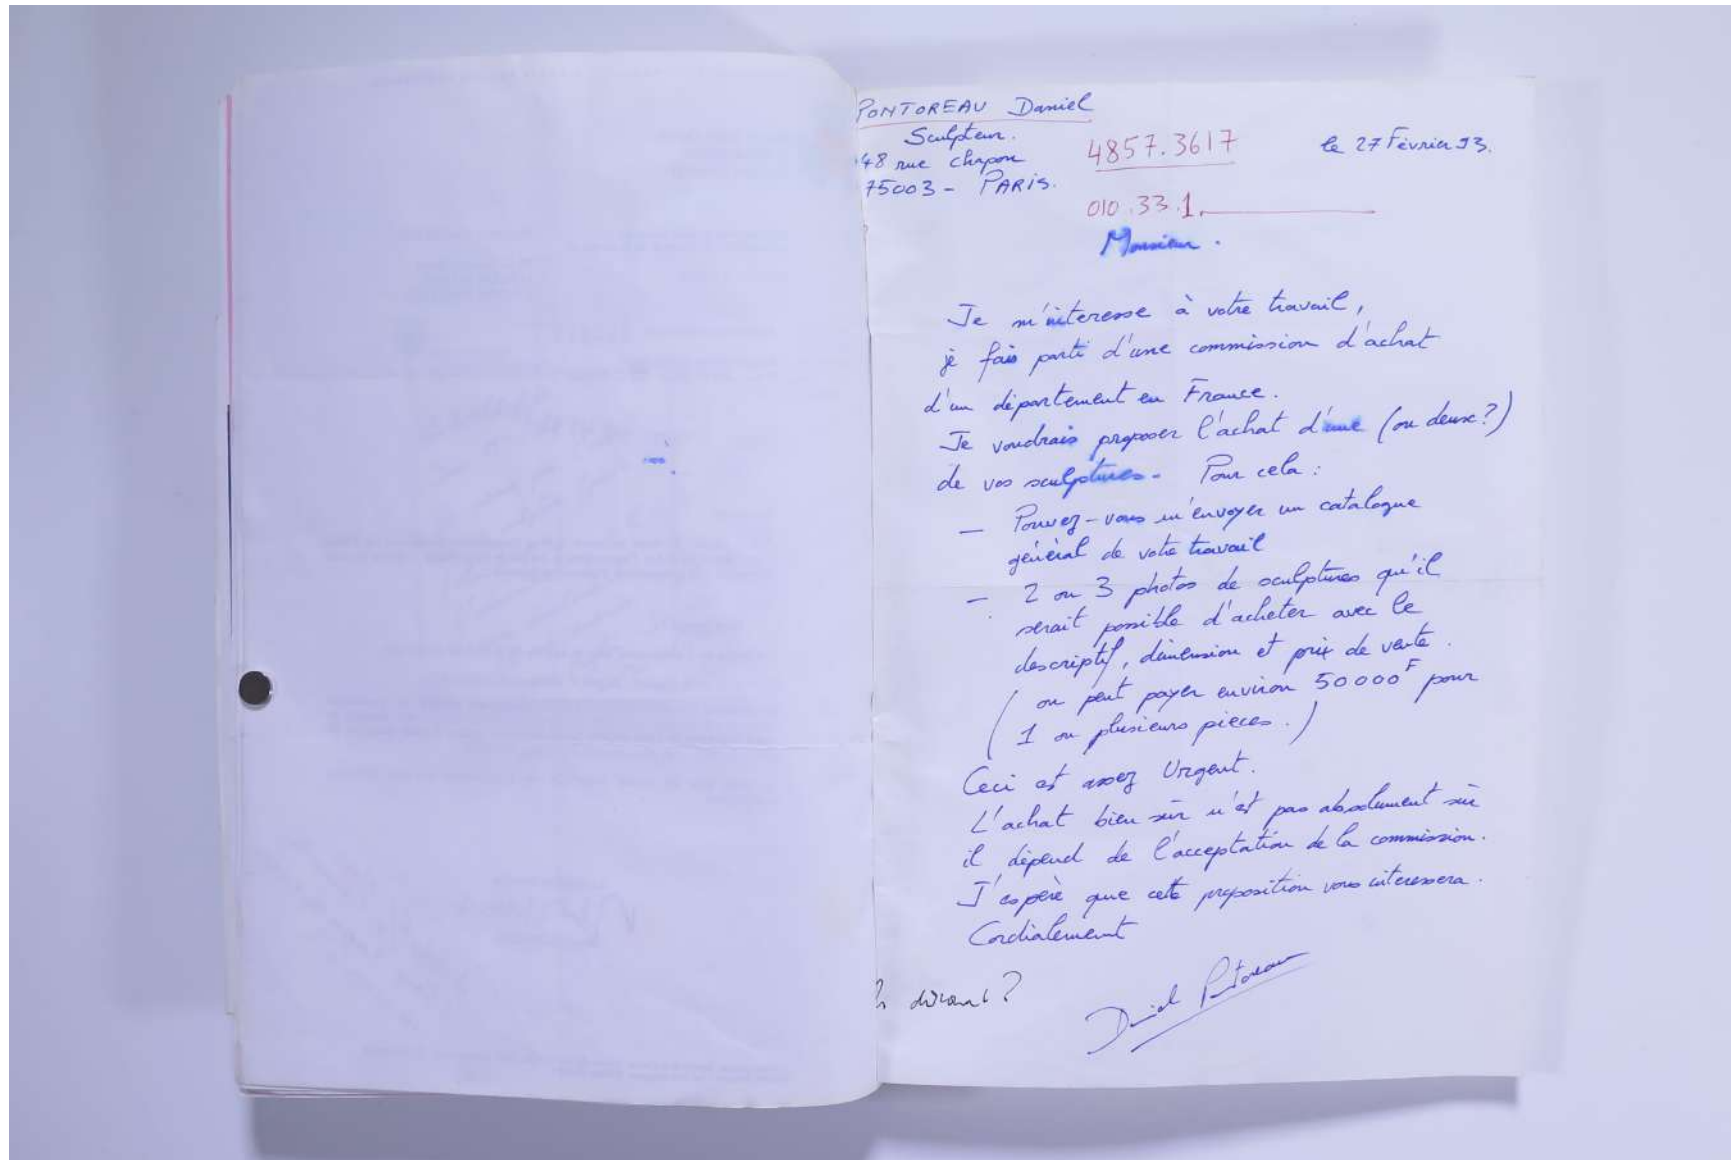 PONTOREAU Daniel
Sculpteur.
48 rue chapon
75003 - PARIS.
4857.3617
le 27 Février 93.
010.33.1.
Monsieur.
Je m'interesse à votre travail,
je fais parti d'une commission d'achat
d'un département en France.
Je voudrais proposer l'achat d'une (ou deux?)
de vos sculptures. Pour cela :
— Pouvez-vous m'envoyer un catalogue
général de votre travail
— 2 ou 3 photos de sculptures qu'il
serait possible d'acheter avec le
descriptif, dimension et prix de vente.
( on peut payer environ 50000F pour
1 ou plusieurs pièces. )
Ceci est assez Urgent.
L'achat bien sûr n'est pas absolument sûr
il dépend de l'acceptation de la commission.
J'espère que cette proposition vous interessera.
Cordialement
Daniel Pontoreau